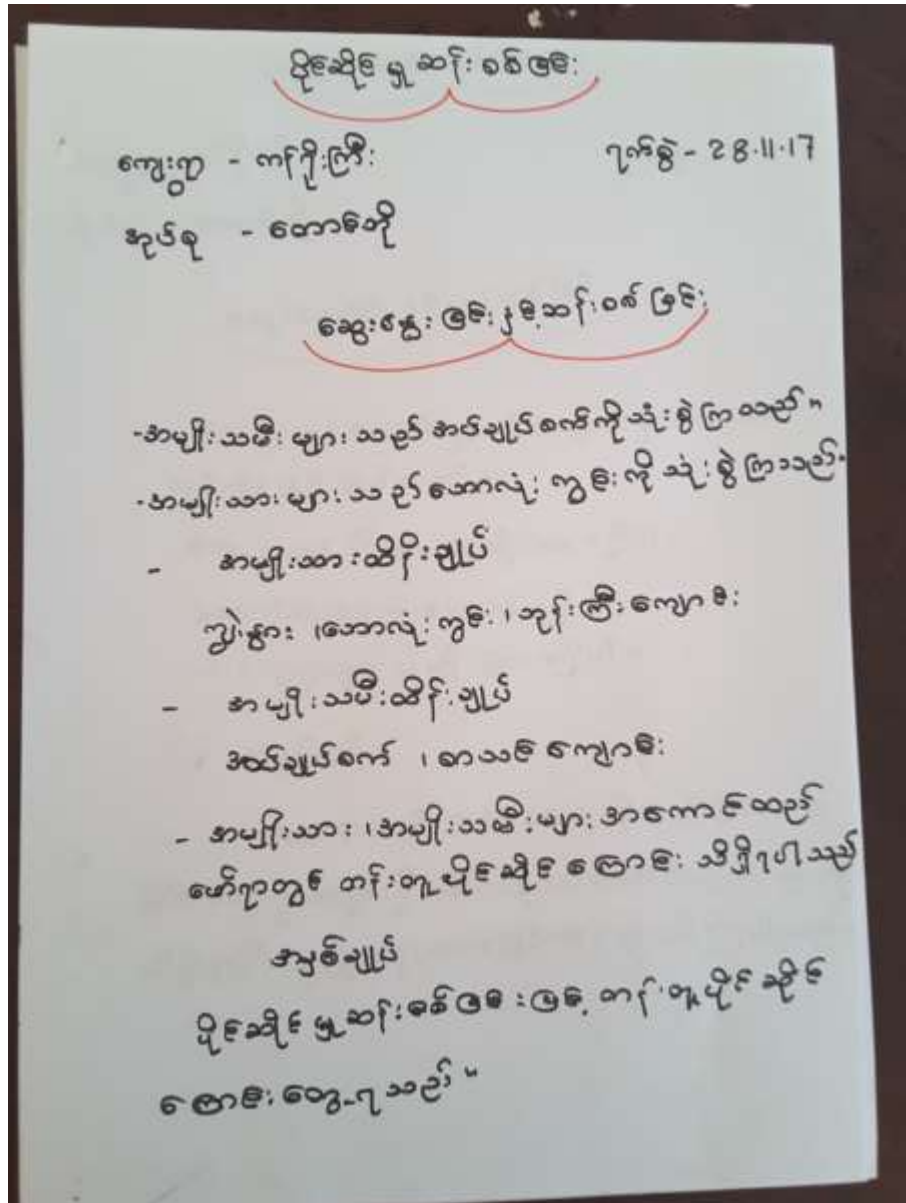 ပိုင်ဆိုင်မှုဆန်းစစ်ခြင်း
ကျေးရွာ - ကန်ကြီး ရက်စွဲ - 28.11.17
အုပ်စု - တောင်ဘို
ဆွေးနွေးခြင်းနှင့်ဆန်းစစ်ခြင်း
-အမျိုးသမီးများသည် အပ်ချုပ်စက်ကိုသုံးစွဲကြသည်။
-အမျိုးသားများသည် ဘောလုံးကွင်းကိုသုံးစွဲကြသည်။
- အမျိုးသားထိန်းချုပ်
ကျွဲနွား ၊ဘောလုံးကွင်း ၊ဘုန်းကြီးကျောင်း
- အမျိုးသမီးထိန်းချုပ်
အပ်ချုပ်စက် ၊ စာသင်ကျောင်း
- အမျိုးသား ၊အမျိုးသမီးများ အကောင်ထည်
ဖော်ရာတွင် တန်းတူပိုင်ဆိုင်ကြောင်း သိရှိရပါသည်
အနှစ်ချုပ်
ပိုင်ဆိုင်မှုဆန်းစစ်ခြင်းဖြင့် တန်းတူပိုင်ဆိုင်
ကြောင်းတွေ့ရသည်။